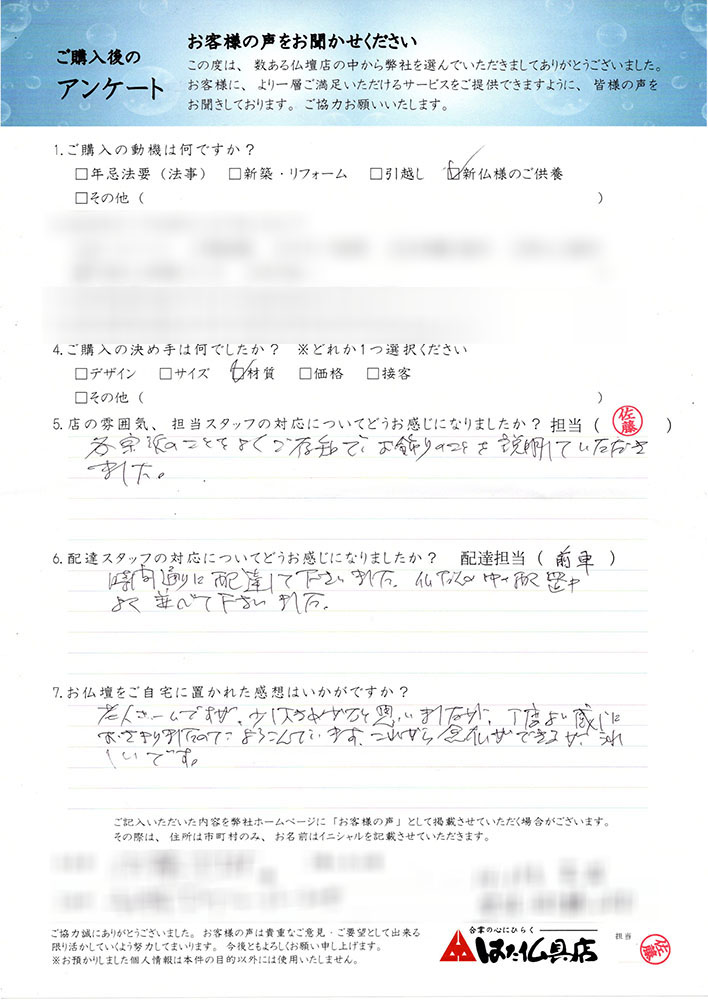 ご購入後の
アンケート
お客様の声をお聞かせください
この度は、数ある仏壇店の中から弊社を選んでいただきましてありがとうございました。
お客様に、より一層ご満足いただけるサービスをご提供できますように、皆様の声を
お聞きしております。ご協力お願いいたします。
1.ご購入の動機は何ですか？
□年忌法要（法事） □新築・リフォーム □引越し ☑新仏様のご供養
□その他（ ）
4.ご購入の決め手は何でしたか？ ※どれか1つ選択ください
□デザイン □サイズ ☑材質 □価格 □接客
□その他（ ）
5.店の雰囲気、担当スタッフの対応についてどうお感じになりましたか？担当（佐藤）
各宗派のことをよくご存知で、お飾りのことを説明していただき
ました。
6.配達スタッフの対応についてどうお感じになりましたか？ 配達担当（前車）
時間通りに配達して下さいました。仏だんの中の配置も
よく並べて下さいました。
7.お仏壇をご自宅に置かれた感想はいかがですか？
老人ホームですが、少し と思いましたが、丁度よい感じに
おさまりましたのでよろこんでいます。これから念仏ができるが、うれ
しいです。
ご記入いただいた内容を弊社ホームページに「お客様の声」として掲載させていただく場合がございます。
その際は、住所は市町村のみ、お名前はイニシャルを記載させていただきます。
ご協力誠にありがとうございました。お客様の声は貴重なご意見・ご要望として出来る
限り活かしていくよう努力してまいります。今後ともよろしくお願い申し上げます。
※お預かりしました個人情報は本件の目的以外には使用いたしません。
合掌の心にひらく
はた仏具店
担当
佐藤